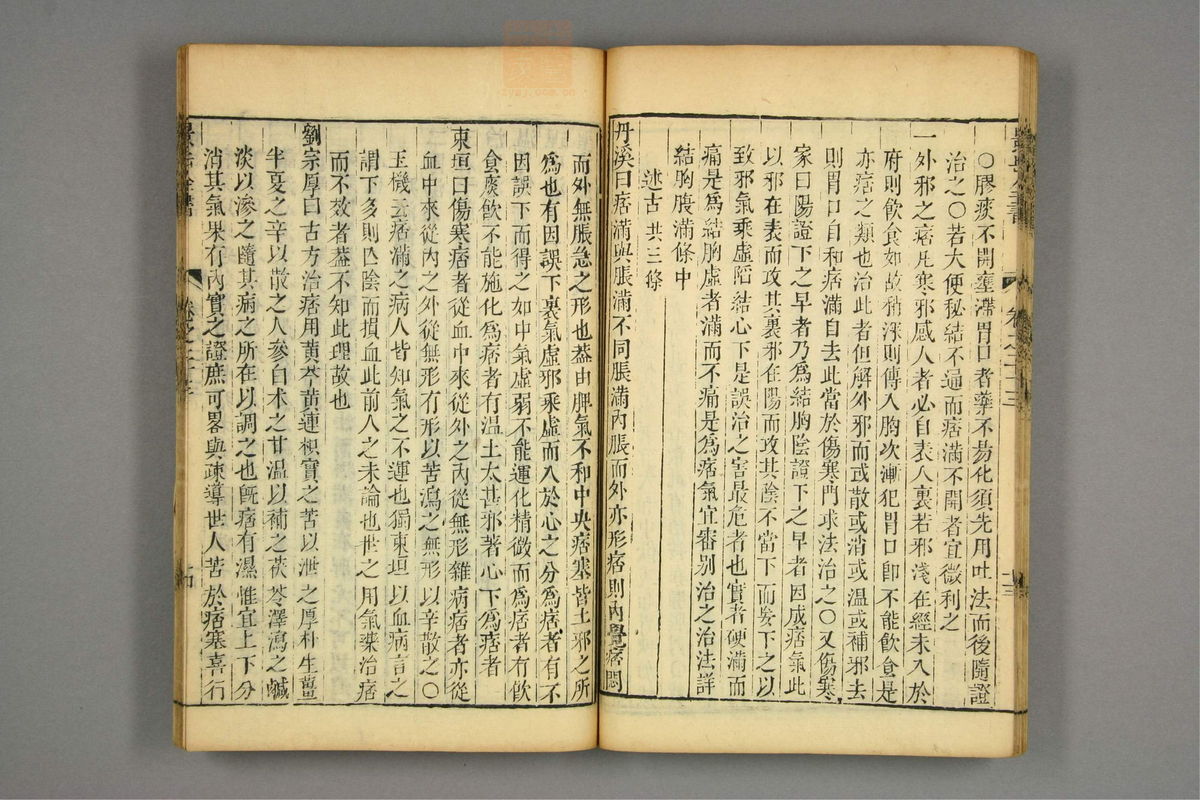 ○膠痰不開壅滯胃口者藥不昜化須先用吐法而後隨證
治之○若大便秘結不通而痞滿不開者宜微利之
一外邪之痞凡寒邪感人者必自表入裏若邪淺在經未入於
府則飲食如故稍深則傳入胸次漸犯胃口卽不能飲食是
亦痞之類也治此者但解外邪而或散或消或温或補邪去
則胃口自和痞滿自去此當於傷寒門求法治之○又傷寒
家曰陽證下之早者乃爲結胸陰證下之早者因成痞氣此
以邪在表而攻其裏邪在陽而攻其陰不當下而妄下之以
致邪氣乘虛陷結心下是誤治之害最危者也實者硬滿而
痛是爲結胸虛者滿而不痛是爲痞氣宜審别治之治法詳
結胸腹滿條中
述古 共三條
丹溪曰痞滿與脹滿不同脹滿內脹而外亦形痞則內覺痞悶
而外無脹急之形也蓋由脾氣不和中央痞塞皆土邪之所
爲也有因誤下裏氣虛邪乘虛而入於心之分爲痞者有不
因誤下而得之如中氣虛弱不能運化精微而爲痞者有飲
食痰飲不能施化爲痞者有温土太甚邪著心下爲痞者
東垣曰傷寒痞者從血中來從外之內從無形雜病痞者亦從
血中來從內之外從無形有形以苦瀉之無形以辛散之○
玉機云痞滿之病人皆知氣之不運也獨東垣以血病言之
謂下多則亡陰而損血此前人之未論也世之用氣藥治痞
而不效者蓋不知此理故也
劉宗厚曰古方治痞用黄芩黄連枳實之苦以泄之厚朴生薑
半夏之辛以散之人參白术之甘温以補之茯苓澤瀉之鹹
淡以滲之隨其病之所在以調之也旣痞有濕惟宜上下分
消其氣果有內實之證庶可畧與疎導世人苦於痞塞喜行